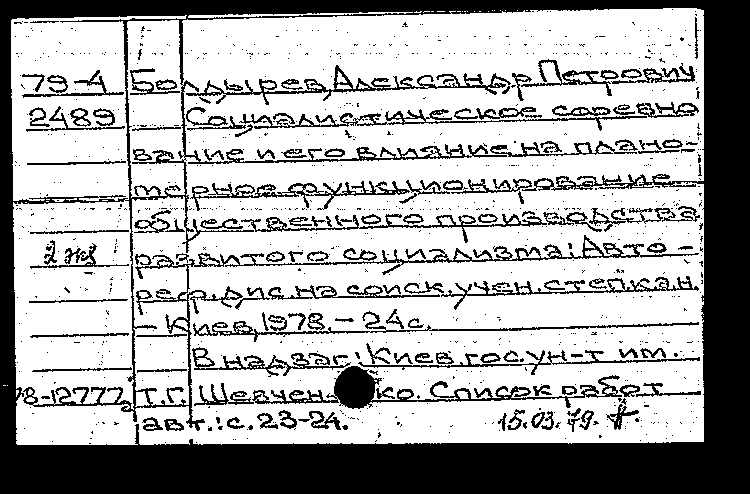 79-4 Болдырев, Александр Петрович
2489 Социалистическое соревно
вание и его влияние на плано-
мерное функционирование
общественного производства
2 экз развитого социализма: Авто-
реф. дис. на соиск. учен. степ. к.э.н.
- Киев, 1978. - 24 с.
В надзаг.: Киев. гос. ун-т им.
78-12777 Т.Г. Шевченко. Список работ
авт.: с. 23-24. 15.03.79.